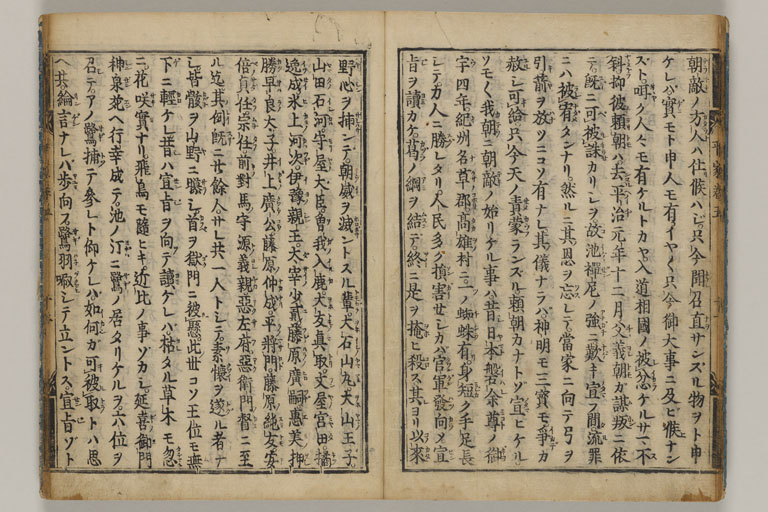 朝敵ノ方人ハ仕候ハジ只今聞召直サンズル物ヲト申
ケレバ實モト申人モ有イヤ〳〵只今御大事ニ及ビ候ナン
ズト呟ク人々モ有ケルトカヤ入道相國ノ被忿ケルサマ不
斜抑彼頼朝ハ去平治元年十二月父義朝ガ謀叛ニ依
テ既ニ可被誅カリシヲ故池禪尼ノ強ニ歎キ宣フ間流罪
ニハ被宥タンナリ然ルニ其恩ヲ忘レテ當家ニ向テ弓ヲ
引箭ヲ放ツニコソ有ナレ其儀ナラバ神明モ三寳モ爭カ
赦シ可給只今天ノ責蒙ランズル頼朝カナトゾ宣ヒケル
ソモ〳〵我朝ニ朝敵ノ始リケル事ハ昔日本磐余尊ノ御
宇四年紀州名草郡高雄村ニ一ノ蜘蛛有身短ク手足長
シテ力人ニ勝レタリ人民多ク損害セシカバ官軍發向メ宣
旨ヲ讀カケ葛ノ綱ヲ結テ終ニ是ヲ掩ヒ殺ス其ヨリ以來
野心ヲ挿ンデ朝威ヲ滅ントスル輩大石山丸大山王子
山田石河守屋大臣曽我入鹿大友真取文屋宮田橘
逸成氷上河次伊豫親王大宰少貳藤原廣嗣惠美押
勝早良太子井上廣公藤原仲成平將門藤原純友安
倍貞任宗任前對馬守源義親惡左府惡衛門督ニ至
ル迄其例既ニ廿餘人サレ共一人トシテ素懐ヲ遂ル者ナ
シ皆骸ヲ山野ニ曝シ首ヲ獄門ニ被懸此世コソ王位モ無
下ニ輕ケレ昔ハ宣旨ヲ向テ讀ケレバ枯タル草木モ忽
ニ花咲實ナリ飛鳥モ隨ヒキ近比ノ事ゾカシ延喜御門
神泉苑ヘ行幸成テ池ノ汀ニ鷺ノ居タリケルヲ六位ヲ
召テアノ鷺捕テ參レト仰ケレバ如何カ可被取トハ思
ヘ共綸言ナレバ歩向フ鷺羽噉シテ立ントス宣旨ゾト